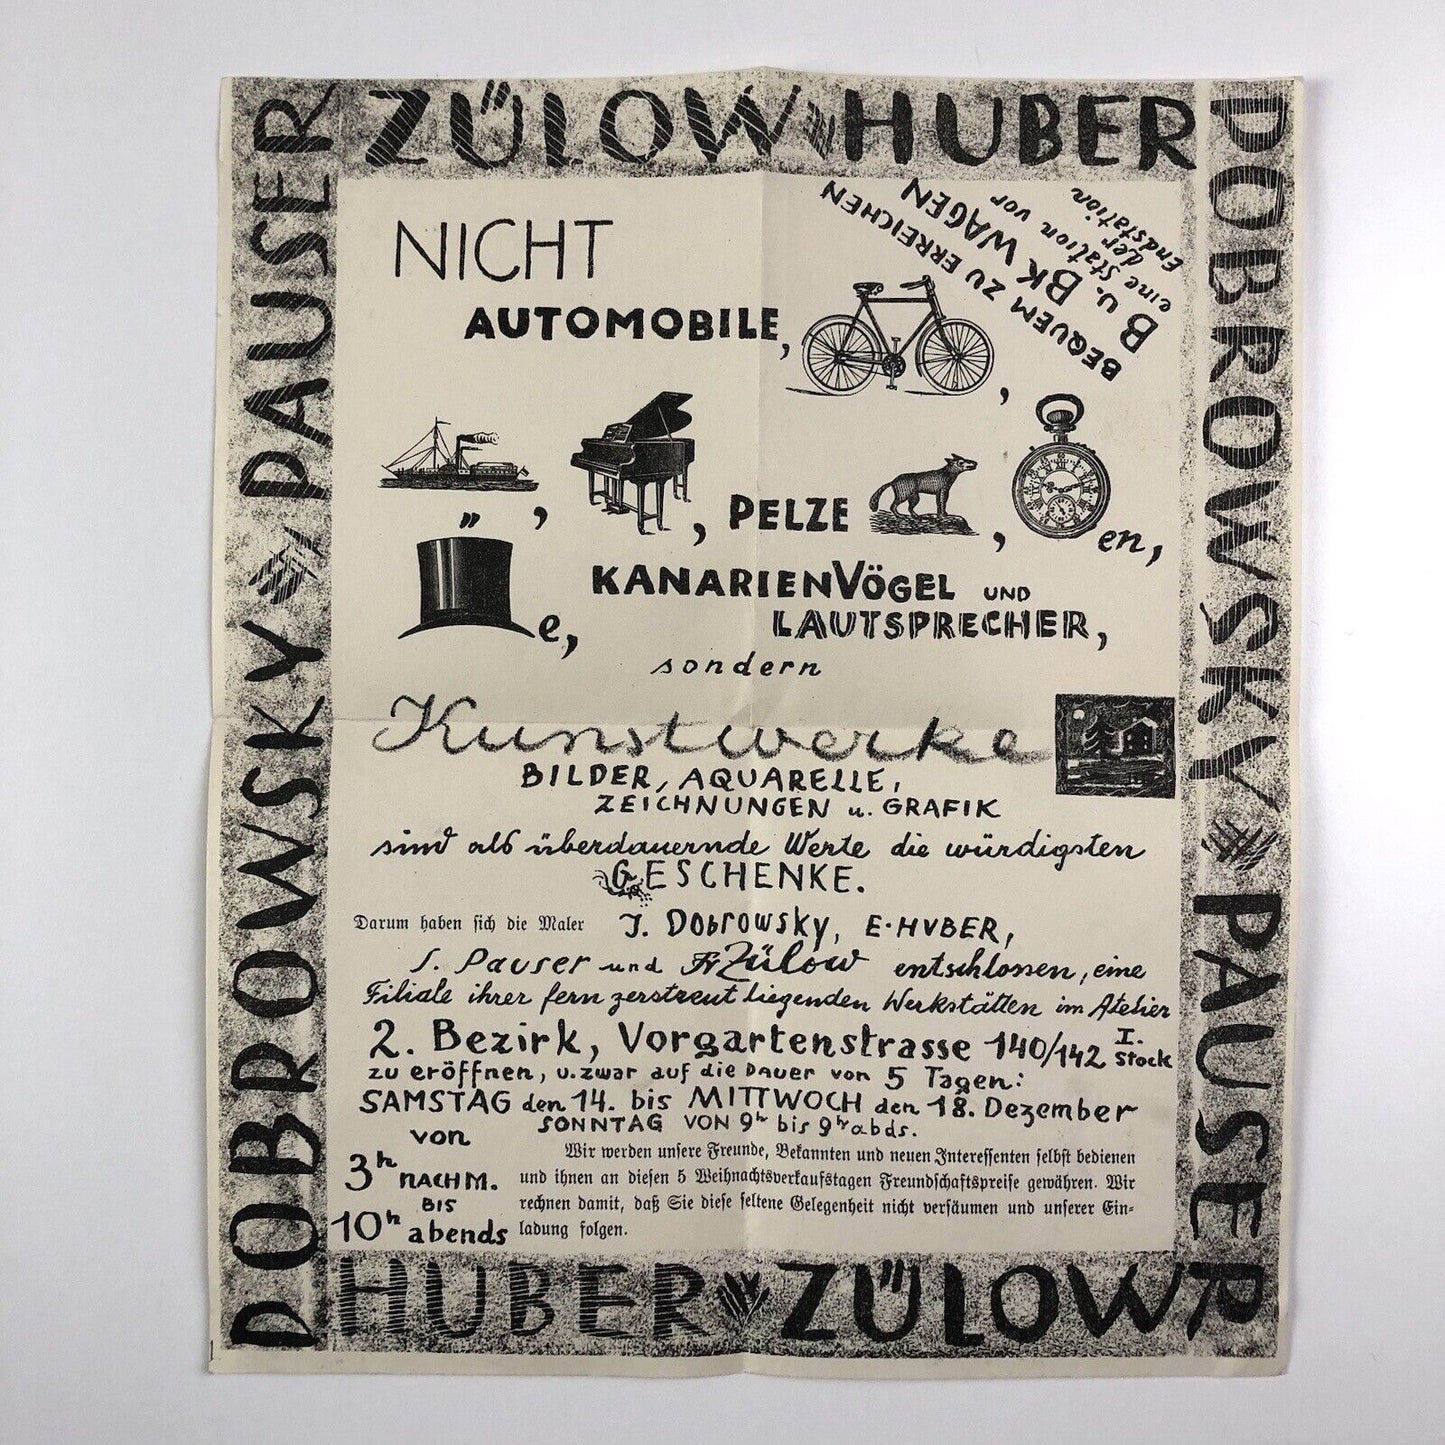 ZÜLOW HUBER
DOBROWSKY PAUSER
HUBER ZÜLOW
DOBROWSKY PAUSER
BEQUEM ZU ERREICHEN
B u. BK WAGEN
eine Station vor
der
Endstation
NICHT
AUTOMOBILE,
,
, , PELZE , en,
" e, KANARIENVÖGEL UND
LAUTSPRECHER,
sondern
Kunstwerke
BILDER, AQUARELLE,
ZEICHNUNGEN u. GRAFIK
sind als überdauernde Werte die würdigsten
GESCHENKE.
Darum haben sich die Maler J. Dobrowsky, E. HUBER,
S. Pauser und Fr Zülow entschlossen, eine
Filiale ihrer fern zerstreut liegenden Werkstätten im Atelier
2. Bezirk, Vorgartenstrasse 140/142 I. Stock
zu eröffnen, u. zwar auf die Dauer von 5 Tagen:
SAMSTAG den 14. bis MITTWOCH den 18. Dezember
SONNTAG VON 9h bis 9hr abds.
von
3h NACHM.
BIS
10h abends
Wir werden unsere Freunde, Bekannten und neuen Interessenten selbst bedienen
und ihnen an diesen 5 Weihnachtsverkaufstagen Freundschaftspreise gewähren. Wir
rechnen damit, daß Sie diese seltene Gelegenheit nicht versäumen und unserer Ein-
ladung folgen.